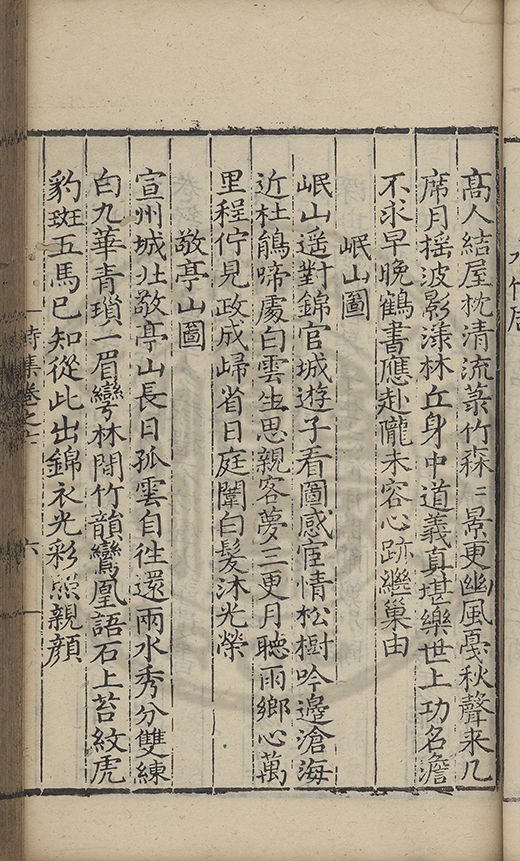 高人結屋枕清流菉竹森〻景更幽風戞秋聲来几
席月揺波影漾林丘身中道義真堪樂世上功名澹
不求早晚鶴書應赴隴未容心跡繼巢由
岷山圖
岷山遥對錦官城遊子看圖感宦情松樹吟邊滄海
近杜鵑啼處白雲生思親客夢三更月聽雨鄉心萬
里程佇見政成歸省日庭闈白髪沐光榮
敬亭山圖
宣州城北敬亭山長日孤雲自徃還兩水秀分雙練
白九華青瑣一眉彎林閒竹韻鸞凰語石上苔紋虎
豹斑五馬巳知從此出錦衣光彩照親顔
詩集卷之
六